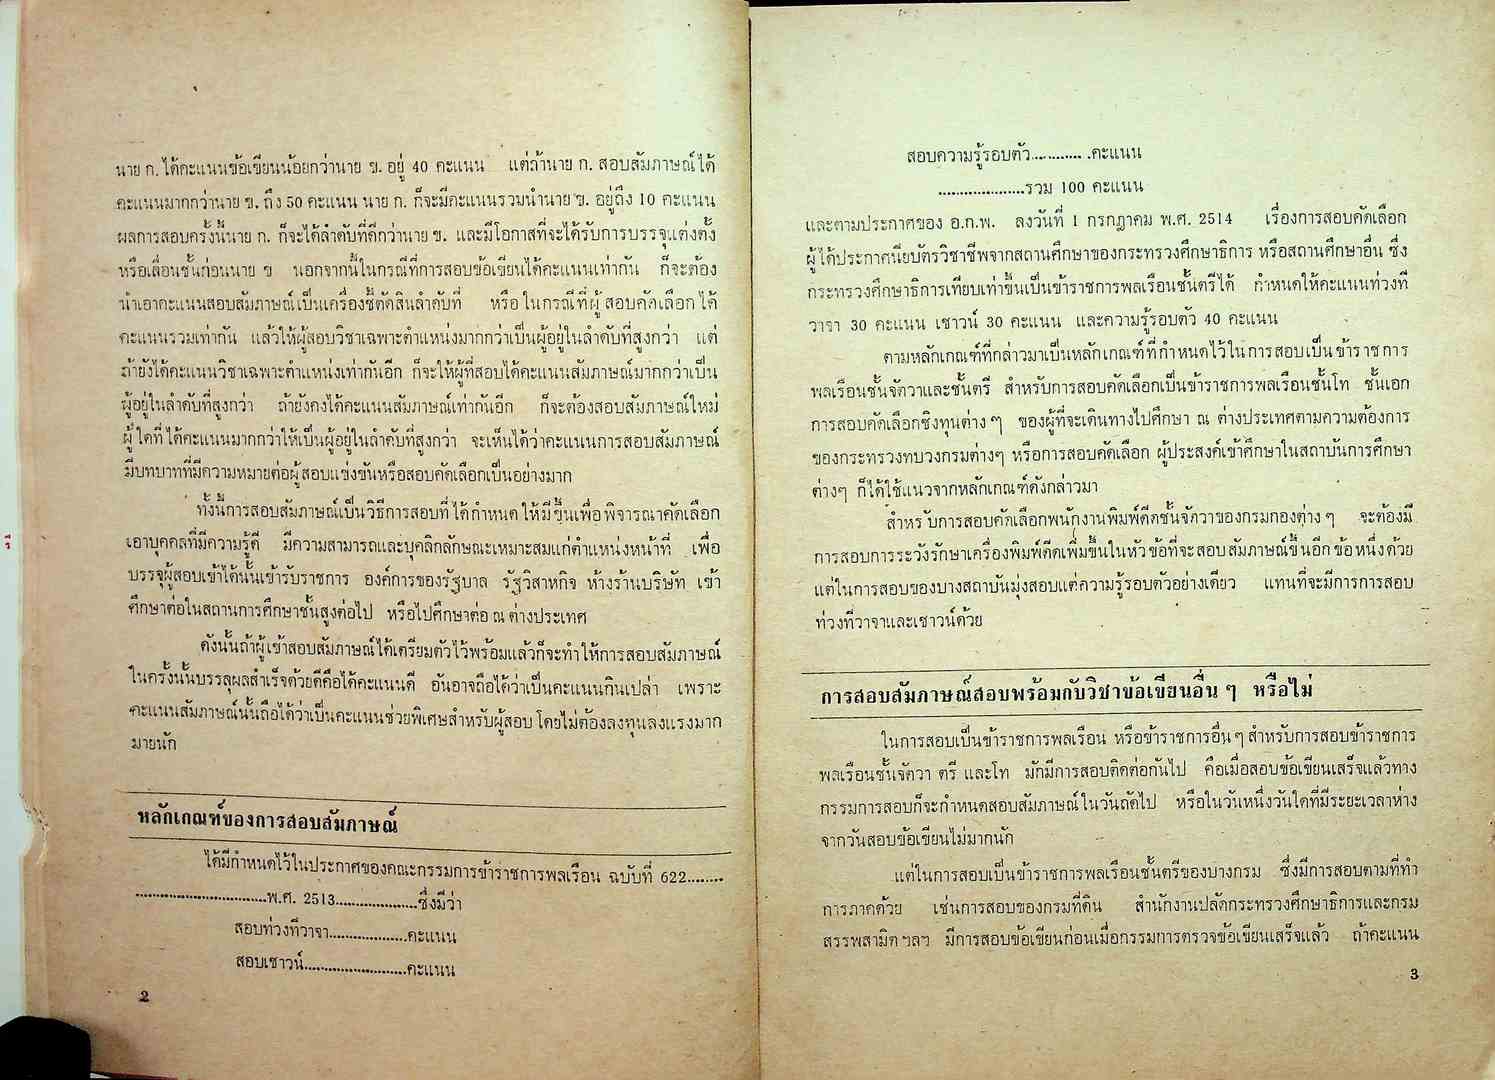 นาย ก. ได้คะแนนข้อเขียนน้อยกว่านาย ข. อยู่ 40 คะแนน แต่ถ้านาย ก. สอบสัมภาษณ์ได้
คะแนนมากกว่านาย ข. ถึง 50 คะแนน นาย ก. ก็จะมีคะแนนรวมนำนาย ข. อยู่ถึง 10 คะแนน
ผลการสอบครั้งนี้นาย ก. ก็จะได้ลำดับที่ดีกว่านาย ข. และมีโอกาสที่จะได้รับการบรรจุแต่งตั้ง
หรือเลื่อนชั้นก่อนนาย ข นอกจากนี้ในกรณีที่การสอบข้อเขียนได้คะแนนเท่ากัน ก็จะต้อง
นำเอาคะแนนสอบสัมภาษณ์เป็นเครื่องชี้ตัดสินลำดับที่ หรือในกรณีที่ผู้สอบคัดเลือกได้
คะแนนรวมเท่ากัน แล้วให้ผู้สอบวิชาเฉพาะตำแหน่งมากกว่าเป็นผู้อยู่ในลำดับที่สูงกว่า แต่
ถ้ายังได้คะแนนวิชาเฉพาะตำแหน่งเท่ากันอีก ก็จะให้ผู้ที่สอบได้คะแนนสัมภาษณ์มากกว่าเป็น
ผู้อยู่ในลำดับที่สูงกว่า ถ้ายังคงได้คะแนนสัมภาษณ์เท่ากันอีก ก็จะต้องสอบสัมภาษณ์ใหม่
ผู้ใดที่ได้คะแนนมากกว่าให้เป็นผู้อยู่ในลำดับที่สูงกว่า จะเห็นได้ว่าคะแนนการสอบสัมภาษณ์
มีบทบาทที่มีความหมายต่อผู้สอบแข่งขันหรือสอบคัดเลือกเป็นอย่างมาก
ทั้งนี้การสอบสัมภาษณ์เป็นวิธีการสอบที่ได้กำหนดให้มีขึ้นเพื่อพิจารณาคัดเลือก
เอาบุคคลที่มีความรู้ดี มีความสามารถและบุคลิกลักษณะเหมาะสมแก่ตำแหน่งหน้าที่ เพื่อ
บรรจุผู้สอบเข้าได้นั้นเข้ารับราชการ องค์การของรัฐบาล รัฐวิสาหกิจ ห้างร้านบริษัท เข้า
ศึกษาต่อในสถานการศึกษาชั้นสูงต่อไป หรือไปศึกษาต่อ ณ ต่างประเทศ
ดังนั้นถ้าผู้เข้าสอบสัมภาษณ์ได้เตรียมตัวไว้พร้อมแล้วก็จะทำให้การสอบสัมภาษณ์
ในครั้งนั้นบรรลุผลสำเร็จด้วยดีคือได้คะแนนดี อันอาจถือได้ว่าเป็นคะแนนกินเปล่า เพราะ
คะแนนสัมภาษณ์นั้นถือได้ว่าเป็นคะแนนช่วยพิเศษสำหรับผู้สอบ โดยไม่ต้องลงทุนลงแรงมาก
มายนัก
หลักเกณฑ์ของการสอบสัมภาษณ์
ได้มีกำหนดไว้ในประกาศของคณะกรรมการข้าราชการพลเรือน ฉบับที่ 622........
..............................พ.ศ. 2513...................ซึ่งมีว่า
สอบท่วงทีวาจา..................คะแนน
สอบเชาวน์........................คะแนน
2
สอบความรู้รอบตัว............ .คะแนน
....................รวม 100 คะแนน
และตามประกาศของ อ.ก.พ. ลงวันที่ 1 กรกฎาคม พ.ศ. 2514 เรื่องการสอบคัดเลือก
ผู้ได้ประกาศนียบัตรวิชาชีพจากสถานศึกษาของกระทรวงศึกษาธิการ หรือสถานศึกษาอื่น ซึ่ง
กระทรวงศึกษาธิการเทียบเท่าขึ้นเป็นข้าราชการพลเรือนชั้นตรีได้ กำหนดให้คะแนนท่วงที
วาจา 30 คะแนน เชาวน์ 30 คะแนน และความรู้รอบตัว 40 คะแนน
ตามหลักเกณฑ์ที่กล่าวมาเป็นหลักเกณฑ์ที่กำหนดไว้ในการสอบเป็นข้าราชการ
พลเรือนชั้นจัตวาและชั้นตรี สำหรับการสอบคัดเลือกเป็นข้าราชการพลเรือนชั้นโท ชั้นเอก
การสอบคัดเลือกชิงทุนต่าง ๆ ของผู้ที่จะเดินทางไปศึกษา ณ ต่างประเทศตามความต้องการ
ของกระทรวงทบวงกรมต่างๆ หรือการสอบคัดเลือก ผู้ประสงค์เข้าศึกษาในสถาบันการศึกษา
ต่างๆ ก็ได้ใช้แนวจากหลักเกณฑ์ดังกล่าวมา
สำหรับการสอบคัดเลือกพนักงานพิมพ์ดีดชั้นจัตวาของกรมกองต่าง ๆ จะต้องมี
การสอบการระวังรักษาเครื่องพิมพ์ดีดเพิ่มขึ้นในหัวข้อที่จะสอบสัมภาษณ์ขึ้นอีกข้อหนึ่งด้วย
แต่ในการสอบของบางสถาบันมุ่งสอบแต่ความรู้รอบตัวอย่างเดียว แทนที่จะมีการการสอบ
ท่วงทีวาจาและเชาวน์ด้วย
การสอบสัมภาษณ์สอบพร้อมกับวิชาข้อเขียนอื่น ๆ หรือไม่
ในการสอบเป็นข้าราชการพลเรือน หรือข้าราชการอื่น ๆ สำหรับการสอบข้าราชการ
พลเรือนชั้นจัตวา ตรี และโท มักมีการสอบติดต่อกันไป คือเมื่อสอบข้อเขียนเสร็จแล้วทาง
กรรมการสอบก็จะกำหนดสอบสัมภาษณ์ในวันถัดไป หรือในวันหนึ่งวันใดที่มีระยะเวลาห่าง
จากวันสอบข้อเขียนไม่มากนัก
แต่ในการสอบเป็นข้าราชการพลเรือนชั้นตรีของบางกรม ซึ่งมีการสอบตามที่ทำ
การภาคด้วย เช่นการสอบของกรมที่ดิน สำนักงานปลัดกระทรวงศึกษาธิการและกรม
สรรพสามิต ฯลฯ มีการสอบข้อเขียนก่อนเมื่อกรรมการตรวจข้อเขียนเสร็จแล้ว ถ้าคะแนน
3